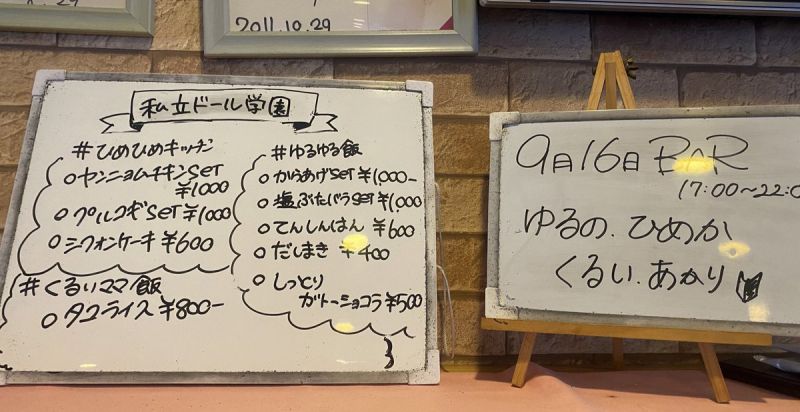 2011.10.29
私立ドール学園
#ひめひめキッチン
○ヤンニョムチキンSET
¥1000
○プルコギSET ¥1000
○シフォンケーキ ¥600
#くるいママ飯
○タコライス ¥800-
#ゆるゆる飯
○からあげSET ¥1,000-
○塩ぶたバラSET ¥1,000
○てんしんはん ¥600
○だしまき ¥400
○しっとり
ガトーショコラ ¥500
9月16日 BAR
17:00~22:0
ゆるの.ひめか
くるい.あかり